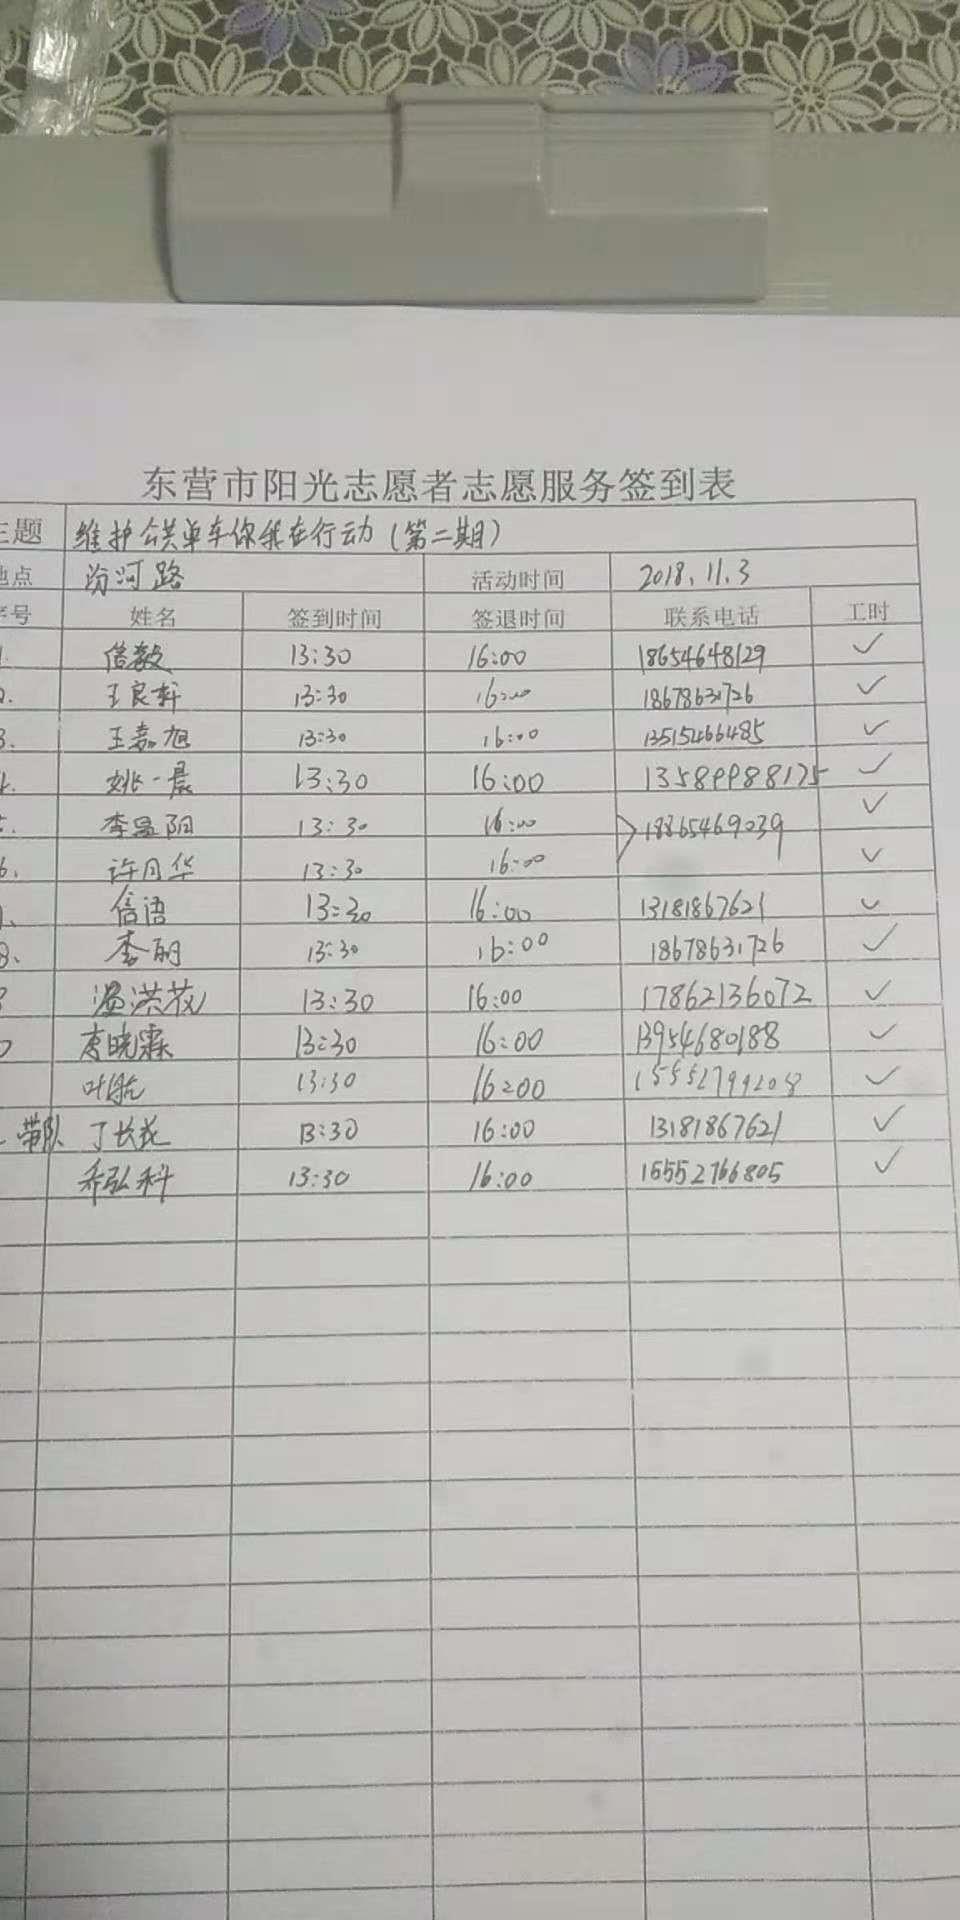 东营市阳光志愿者志愿服务签到表
主题 维护公共单车你我在行动(第二期)
地点 汾河路 活动时间 2018.11.3
序号 姓名 签到时间 签退时间 联系电话 工时
13:30 16:00 18654648129 ✓
王良轩 13:30 16:00 18678631726 ✓
3. 王嘉旭 13:30 16:00 13515466485 ✓
姚一晨 13:30 16:00 13589988175 ✓
李昱阳 13:30 16:00 18865469039 ✓
6. 许月华 13:30 16:00 ✓
信语 13:30 16:00 13181867621 ✓
8、 李丽 13:30 16:00 18678631726 ✓
温洪花 13:30 16:00 17862136072 ✓
李晓霖 13:30 16:00 13954680188 ✓
叶航 13:30 16:00 ✓
带队 丁长花 13:30 16:00 13181867621 ✓
乔弘科 13:30 16:00 15552766805 ✓